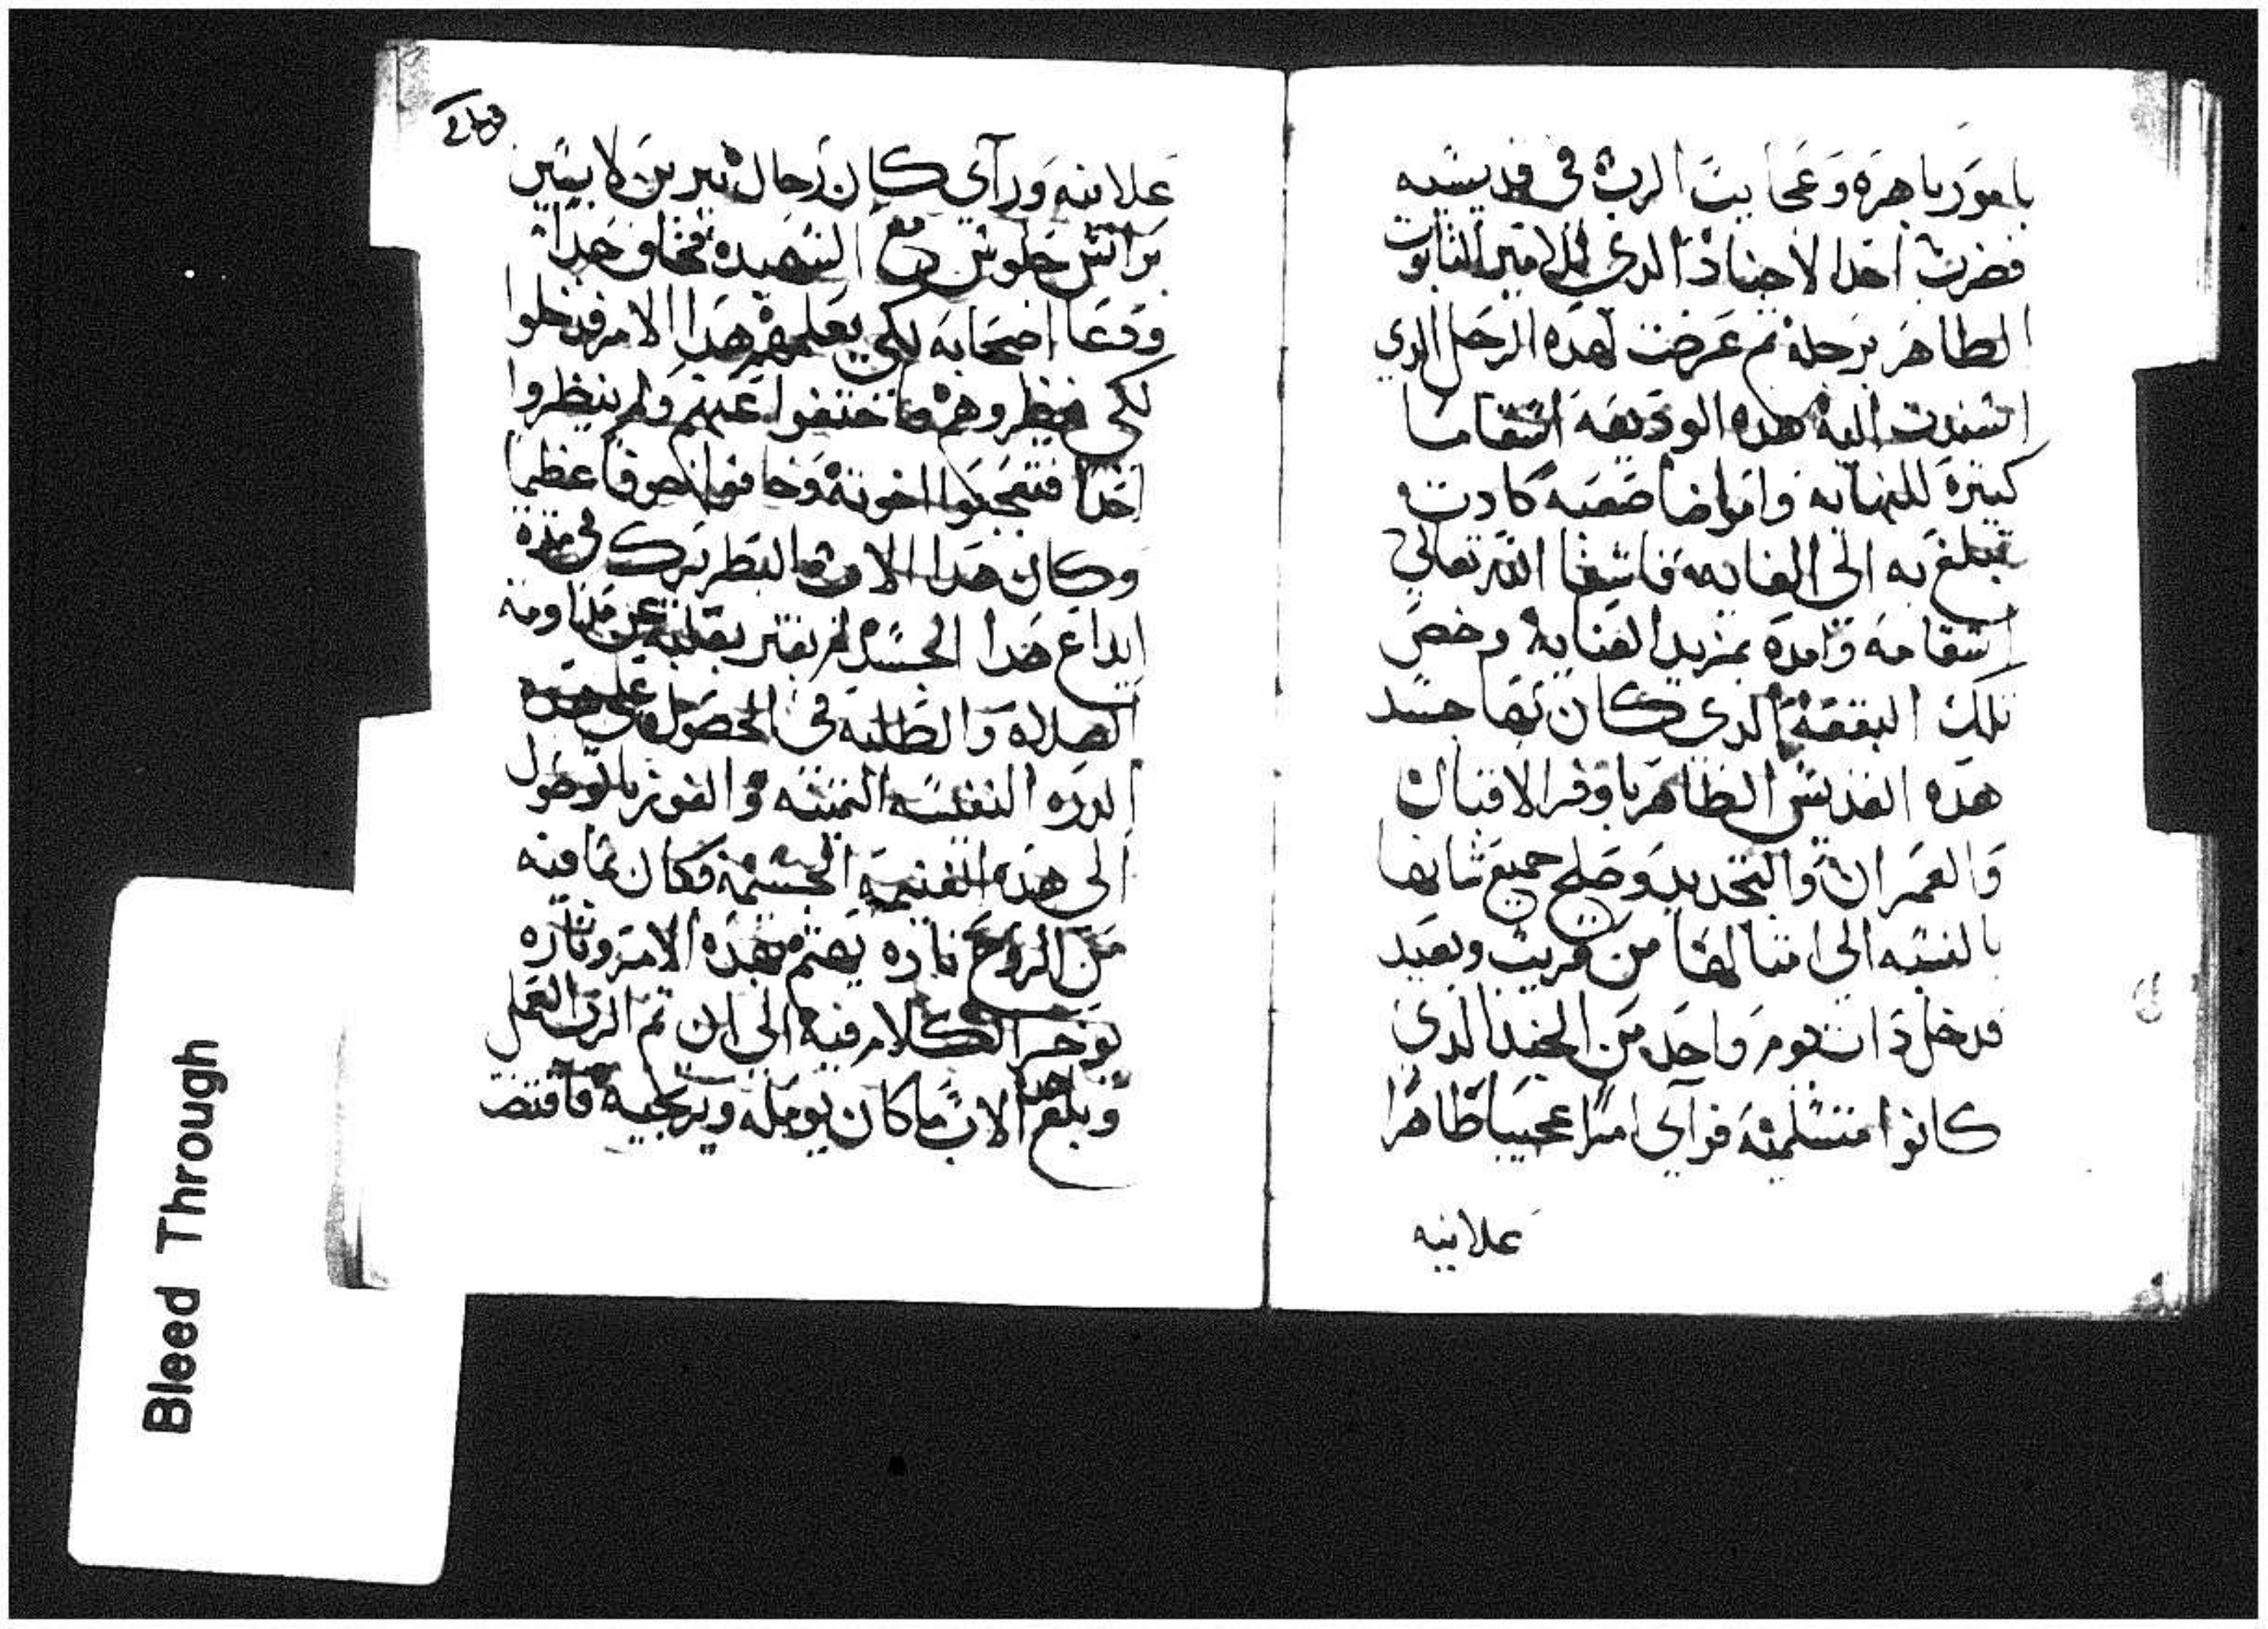 بامور باهره وعجايب الرب في قديسيه
فضرب احد الاجناد الدي للامير التابوت
الطاهر برجله ثم عرضت لهده الرجل الدي
اسندت اليه هده الوديعه اسقاما
كتيره للنهايه وامراضا صعبه كادت
تبلغ به الى الغايه فاشفا الله تعالي
اسقامه وامده بمزيد العنايه وخص
تلك البقعه الدي كان بها جسد
هده القديس الطاهر باوفر الاقبال
والعمران والتجديد وصلح جميع شانها
بالنسبه الى امتالها من قريب وبعيد
فدخل دات يوم واحد من الجند الدي
كانوا متسلمينه فراي امرا عجيبا ظاهرا
علانيه
علانيه وراي كان رجال نيرين لابسين
برانس جلوس مع الشهيده فخاف جدا
ودعا اصحابه لكي يعلمهم هدا الامر فدخلوا
لكي ينظروهم فاختفوا عنهم ولم ينظروا
احدا فتعجبوا اخوته وخافوا خوفا عظيما
وكان هدا الاب البطريرك في مده
ايداع هدا الجسد لم يفتر بقلبه عن مداومه
الصلاه والطلبه في الحصول على هده
الدره النفيسه التمينه والفوز بالوصول
الى هده الغنيمه الجسيمه فكان بما فيه
من الروح تاره يهتم بهده الامر وتاره
يوخر الكلام فيه الى ان تم الرب العمل
وبلغ هدا الاب ما كان يومله ويرتجيه فاقتضـ